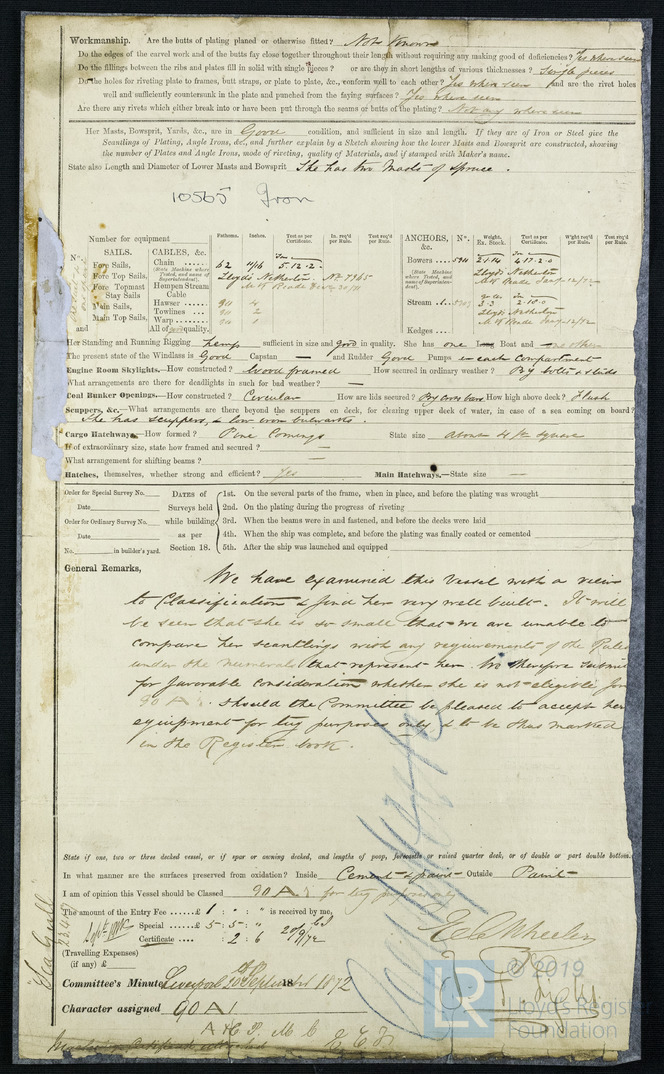 Workmanship. Are the butts of plating planed or otherwise fitted? Not Known
Do the edges of the carvel work and of the butts fay close together throughout their length without requiring any making good of deficiencies? Yes where seen
Do the fillings between the ribs and plates fill in solid with single pieces? or are they in short lengths of various thicknesses? Single pieces
Do the holes for riveting plate to frames, butt straps, or plate to plate, &c., conform well to each other? Yes where seen and are the rivet holes
well and sufficiently countersunk in the plate and punched from the faying surfaces? Yes where seen
Are there any rivets which either break into or have been put through the seams or butts of the plating? Not any where seen
Her Masts, Bowsprit, Yards, &c., are in Good condition, and sufficient in size and length. If they are of Iron or Steel give the
Scantlings of Plating, Angle Irons, &c., and further explain by a Sketch showing how the lower Masts and Bowsprit are constructed, showing
the number of Plates and Angle Irons, mode of riveting, quality of Materials, and if stamped with Maker's name.
State also Length and Diameter of Lower Masts and Bowsprit She has two Masts of Spruce.
10565 Iron
Number for equipment
Fathoms. Inches. Test as per Certificate. In. req'd per Rule. Test req'd per Rule.
ANCHORS, &c. Nº. Weight. Ex. Stock. Test as per Certificate. W'ght req'd per Rule. Test req'd per Rule.
Nº. SAILS. CABLES, &c.
Fore Sails, Chain 62 11/16 5.12.2
Bowers 2.1.4 4.17.2.0
Fore Top Sails, (State Machine where Tested, and name of Superintendent). Lloyds Netherton Nº 7365
(State Machine where Tested, and name of Superintendent). Lloyds Netherton
Fore Topmast Stay Sails Hempen Stream Cable
Main Sails, Hawser 90 4
Stream 3.3 2.10.0
Main Top Sails, Towlines 90 2
Lloyds Netherton
Warp 90
and All of good quality.
Kedges
Her Standing and Running Rigging hemp sufficient in size and good in quality. She has one Long Boat and one other
The present state of the Windlass is Good Capstan — and Rudder Good Pumps in each compartment
Engine Room Skylights.—How constructed? Wood framed How secured in ordinary weather? By bolts & lids
What arrangements are there for deadlights in such for bad weather? —
Coal Bunker Openings.—How constructed? Circular How are lids secured? By cross bars How high above deck? Flush
Scuppers, &c.—What arrangements are there beyond the scuppers on deck, for clearing upper deck of water, in case of a sea coming on board?
She has scuppers, & low iron bulwarks.
Cargo Hatchways.—How formed? Pine Comings State size about 4 ft square
If of extraordinary size, state how framed and secured? —
What arrangement for shifting beams? —
Hatches, themselves, whether strong and efficient? Yes Main Hatchways.—State size —
Order for Special Survey No.
Date
Order for Ordinary Survey No.
Date
No. in builder's yard.
DATES of Surveys held while building as per Section 18.
1st. On the several parts of the frame, when in place, and before the plating was wrought
2nd. On the plating during the progress of riveting
3rd. When the beams were in and fastened, and before the decks were laid
4th. When the ship was complete, and before the plating was finally coated or cemented
5th. After the ship was launched and equipped
General Remarks,
We have examined this Vessel with a view
to Classification & find her very well built. It will
be seen that she is so small that we are unable to
compare her scantlings with any requirements of the Rules
under the numerals that represent her. We therefore submit
for favorable consideration whether she is not eligible for
90 A. Should the Committee be pleased to accept her
equipment for tug purposes only & to be thus marked
in the Register book.
State if one, two or three decked vessel, or if spar or awning decked, and lengths of poop, forecastle or raised quarter deck, or of double or part double bottom.
In what manner are the surfaces preserved from oxidation? Inside Cement & paint Outside Paint
I am of opinion this Vessel should be Classed 90 A.1 for tug purposes
The amount of the Entry Fee £ 1 : " : " is received by me,
Special £ 5 : 5 : " 20/9/72
Certificate : 2 : 6
(Travelling Expenses)
(if any) £
Committee's Minute Liverpool 10th September 1872
Character assigned 90 A1
Sea Gull
© 2019
Lloyd's Register
Foundation